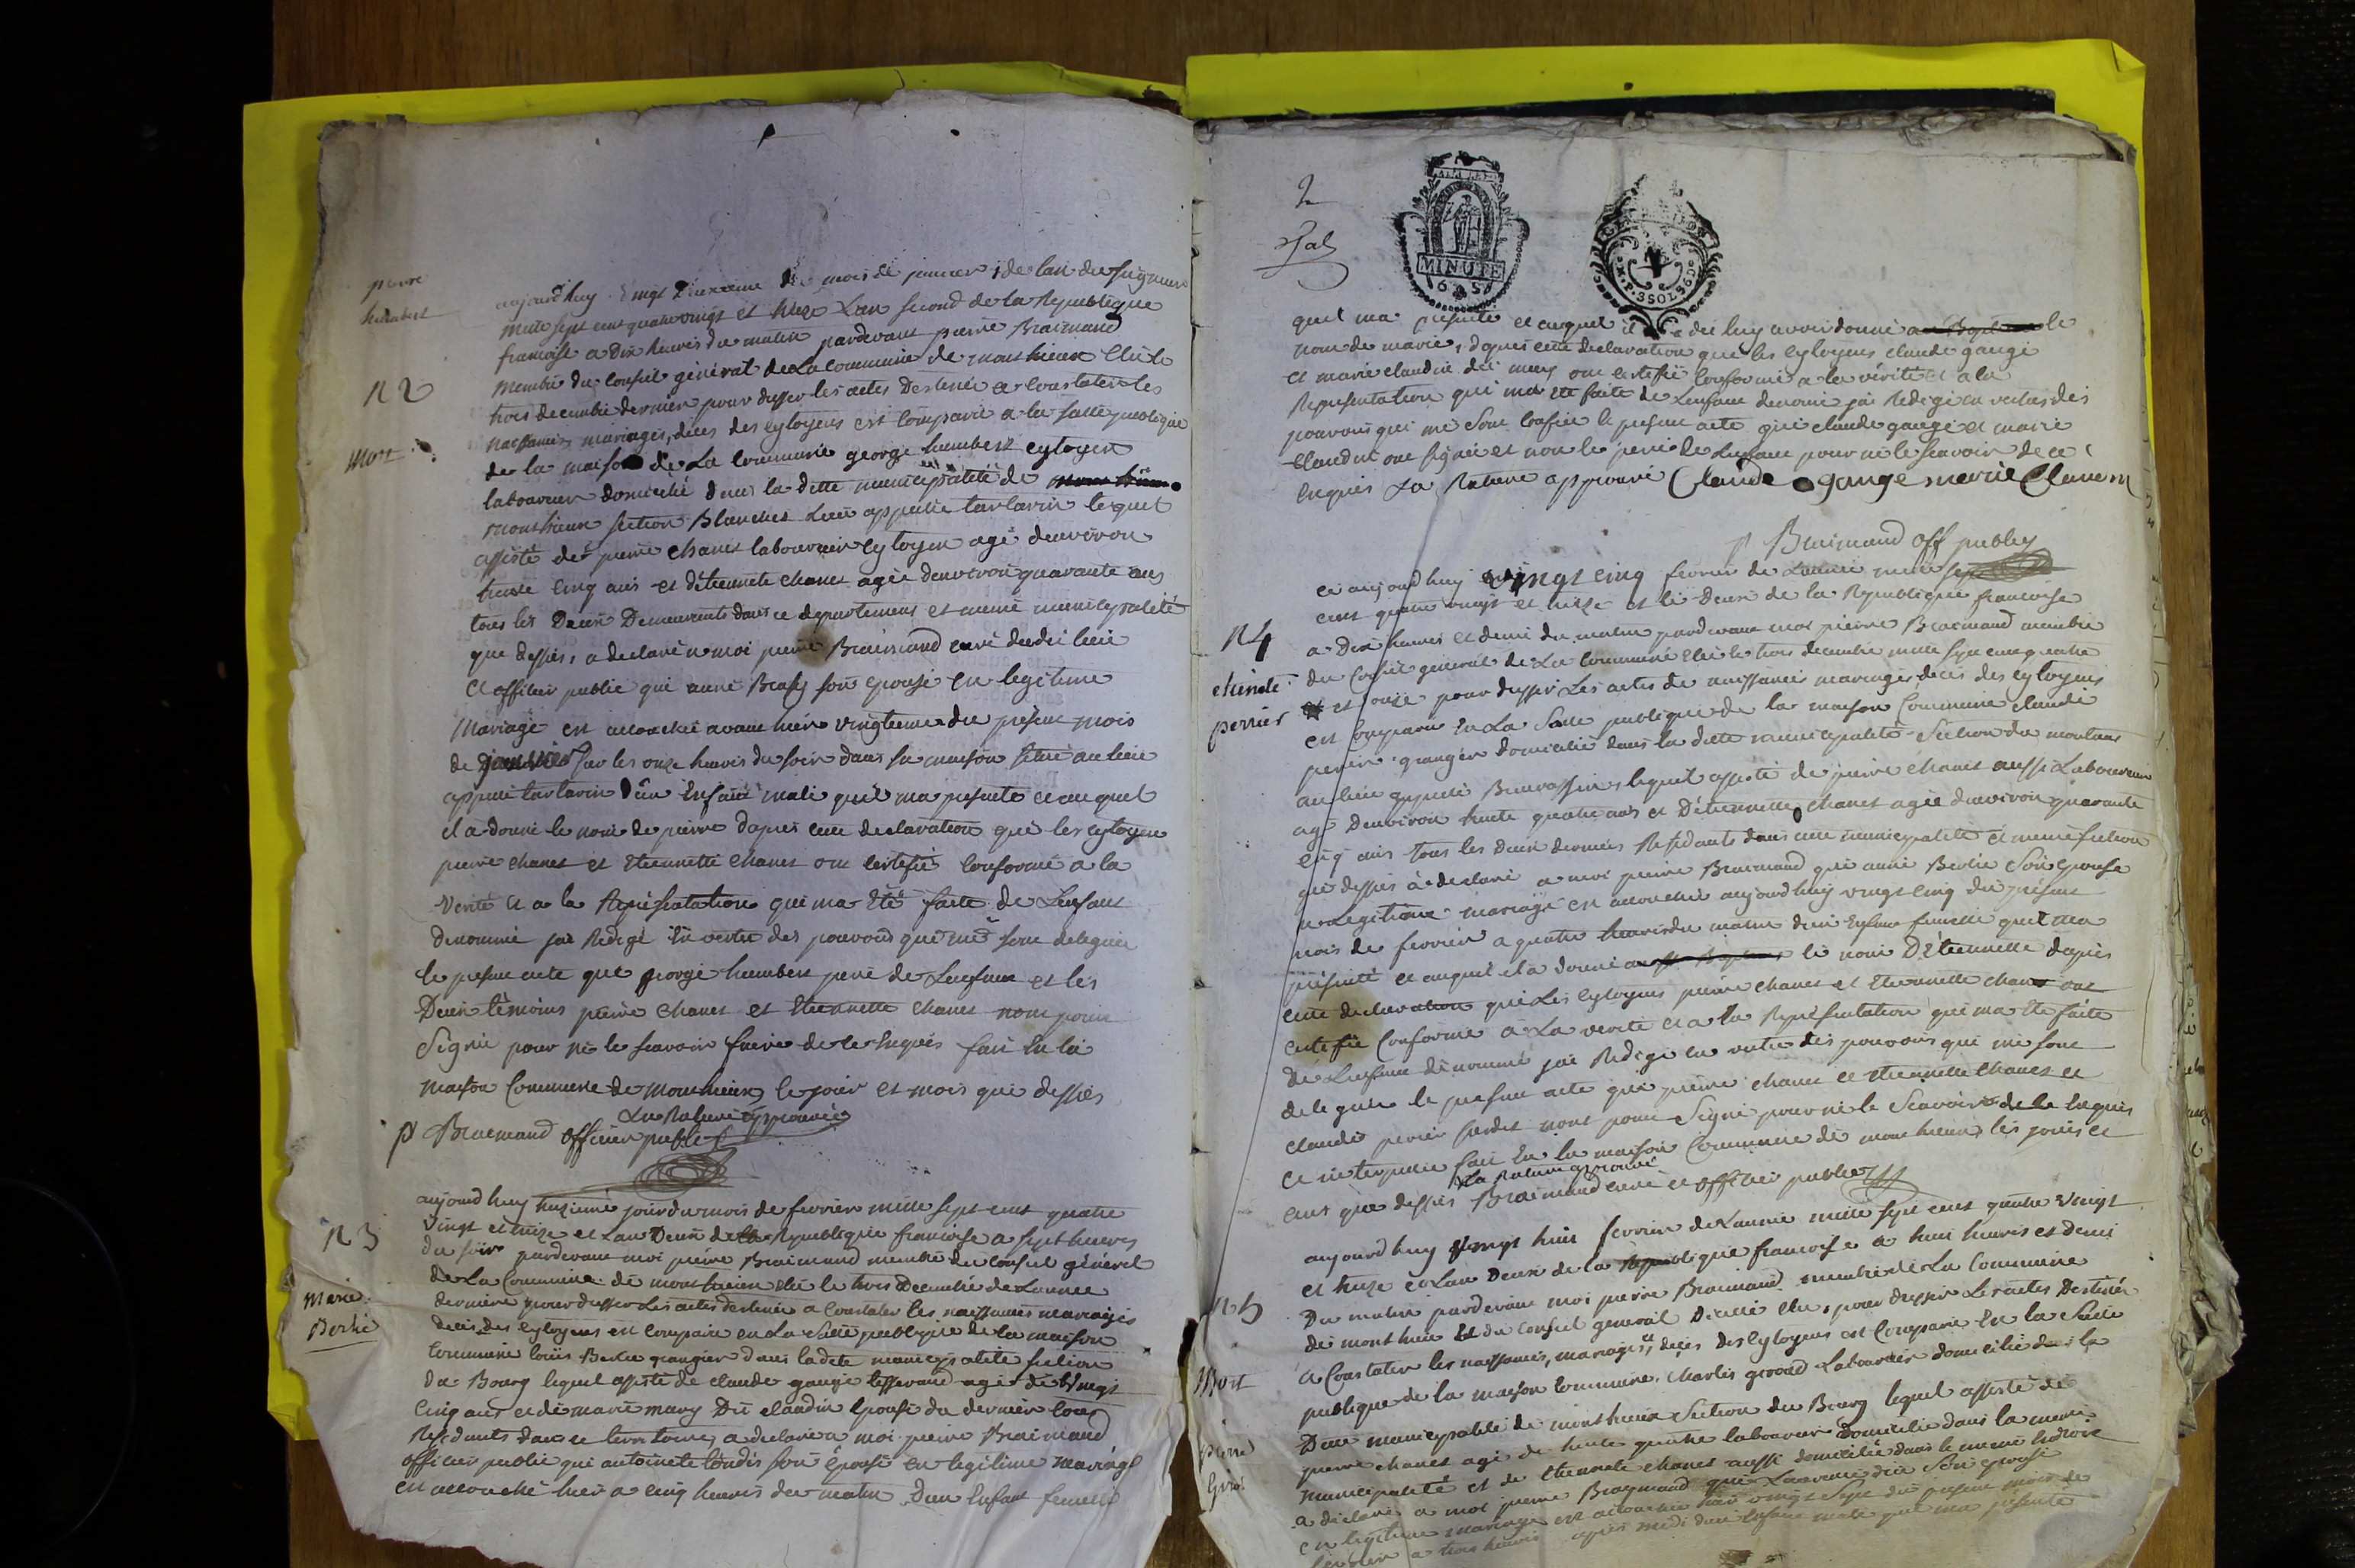 pierre
humbert
n 2
mort
aujourd'huy vingt deuxieme du mois de janvier, de lan du seigneur
mille sept cent quatre vingt et treze Lan second de la Republique
francoise a dix heures du matin pardevant pierre Braimand
membre du Conseil général de La Commune de monthieux Elu le
trois decembre dernier pour dresser les actes Destinés a Constater les
naissances mariages, deces des cytoyens est Comparu a la salle publique
de la maison de La Commune george humbert cytoyen
laboureur domicilié dans la ditte municipalité de
monthieux section Blanches Lieu appellée tarlarin lequel
assisté de pierre chanet laboureur cytoyen agé denviron
trente cinq ans et d'étiennette chanet agée denviron quarante ans
tous les Deux Demeurants dans ce departement et meme municipalité
que dessus, a declaré a moi pierre Braimand curé dudit lieu
et officier public que anne son epouse en legitime
Mariage est accouchée avant hier vingtieme du présent mois
de janvier sur les onze heures du soir dans sa maison située au lieu
appellé tarlarin d'un Enfant male qu'il ma présenté et auquel
il a donné le nom de pierre d'apres cette declaration que les cytoyens
pierre chanet et Etiennette chanet ont certifié Conforme a la
verité et a la Représentation qui ma Eté faite de Lenfant
denommé jai Redigé En vertu des pouvoirs qui me sont delegués
le present acte que george humbert pere de Lenfant et les
Deux témoins pierre chanet et Etiennette chanet nont point
Signé pour ne le scavoir faire de ce Enquis fait En la
maison Commune de Monthieux le jour et mois que dessus
La Rature approuvée
p Braimand officier public
n 3
Marie
Berlie
aujourd huy onzieme jour du mois de fevrier mille sept cent quatre
vingt et treize et Lan Deux de la Republique francoise a sept heures
du soir pardevant moi pierre Braimand membre du Conseil général
de La Commune de monthieux élu le trois Decembre de Lannee
derniere pour dresser Les actes destinés a Constater les naissances mariages
deces des cytoyens est Comparu en La Salle publique de la maison
Commune louis Berlie grangier dans la dite municipalité section
du Bourg lequel assisté de claude gauge tisserand agé de vingt
cinq ans et de marie claudin Epouse du dernier tous
Residants dans ce territoire, a declaré a moi pierre Braimand
officier public que antoinete londis son épouse en legitime mariage
est accouchée hier a cinq heures du matin d'un Enfant femelle
2
MINUTE
3 SOLS
quil ma présenté et auquel il a dit luy avoir donné le
nom de marie, d'apres cette declaration que les cytoyens claude gauge
et marie claudin ont certifié Conforme a la vérité et a la
Representation qui ma été faite de Lenfant denomé jai Redigé en vertus des
pouvoirs qui me sont Confiés le present acte que claude gauge et marie
Claudin ont signé et non le pere de Lenfant pour ne le scavoir de ce
Enquis La Rature approuvé Claude gauge marie Claudin
p Braimand off public
n 4
etienete
perrier
et aujourd huy vingt cinq fevrier de Lannée mille sept
cent quatre vingt et treize et le Deux de la Republique francoise
a Dix heures et demi du matin pardevant moi pierre Braimand membre
du Conseil général de La Commune Elu le trois decembre mille sept cent quatre
et pour dresser Les actes de naissances mariages, deces des cytoyens
est Comparu En La Salle publique de la maison Commune claude
perier granger domicilié dans la ditte municipalité Section du montaut
au lieu appellé lequel assisté de pierre chanet aussi Laboureur
agé Denviron trente quatre ans et D'étiennette chanet agée denviron quarante
cinq ans tous les deux derniers Residants dans cette municipalité et meme section
que dessus à declaré a moi pierre Braimand que anne Berlie Son Epouse
en Legitime mariage est accouchée aujourdhuy vingt cinq du présent
mois de fevrier a quatre heures du matin d'un Enfant femelle quil ma
présenté et auquel il a donné le nom D'Etiennette dapres
cette declaration que Les cytoyens pierre chanet et Etiennette chanet ont
certifié Conforme a La verité et a la Representation qui ma Eté faite
de Lenfant denommé jai Redigé en vertu des pouvoirs qui me sont
delegués le présent acte que pierre chanet et Etiennette chanet et
claude perier susdit nont point Signé pour ne le Scavoir de ce Enquis
et interpellé fait En la maison Commune de monthieux les jours et
ans que dessus La Rature approuvé Braimand curé et officier public
n 5
Mort
pierre
Giroud
aujourd huy vingt huit fevrier de Lannée mille sept cent quatre vingt
et treze et Lan Deux de la Republique francoise a huit heures et demi
Du matin pardevant moi pierre Braimand membre de La Commune
de monthieux et du Conseil general Elu, pour dresser Les actes Destinés
a Constater les naissances, mariages, deces des Cytoyens est Comparu En la Salle
publique de la maison Commune, Charles giroud Laboureur domicilié dans la
Ditte municipalité de monthieux Section du Bourg lequel assisté de
pierre chanet agé de trente quatre laboureur Domicilié dans la meme
municipalité et de Etiennette chanet aussi domiciliée dans le meme Endroit
a déclaré a moi pierre Braymand que Son epouse
en legitime mariage est accouchée hier vingt Sept du present mois de
fevrier a trois heures apres midi d'un Enfant male quil ma présenté